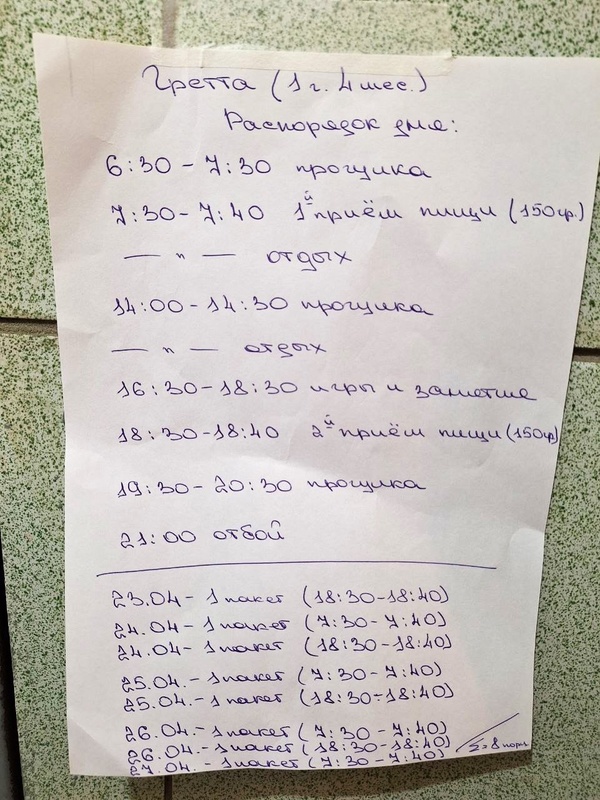 Гретта (1 г. 4 мес.)
Распорядок дня:
6:30 - 7:30 прогулка
7:30 - 7:40 1й приём пищи (150гр.)
— " — отдых
14:00 - 14:30 прогулка
— " — отдых
16:30 - 18:30 игры и занятие
18:30 - 18:40 2й приём пищи (150гр)
19:30 - 20:30 прогулка
21:00 отбой
23.04 - 1 пакет (18:30-18:40)
24.04 - 1 пакет (7:30 - 7:40)
24.04 - 1 пакет (18:30 - 18:40)
25.04. - 1 пакет (7:30 - 7:40)
25.04. - 1 пакет (18:30-18:40)
26.04. - 1 пакет (7:30 - 7:40)
26.04. - 1 пакет (18:30-18:40)
27.04. - 1 пакет (7:30 - 7:40)
Σ = 8 порц.